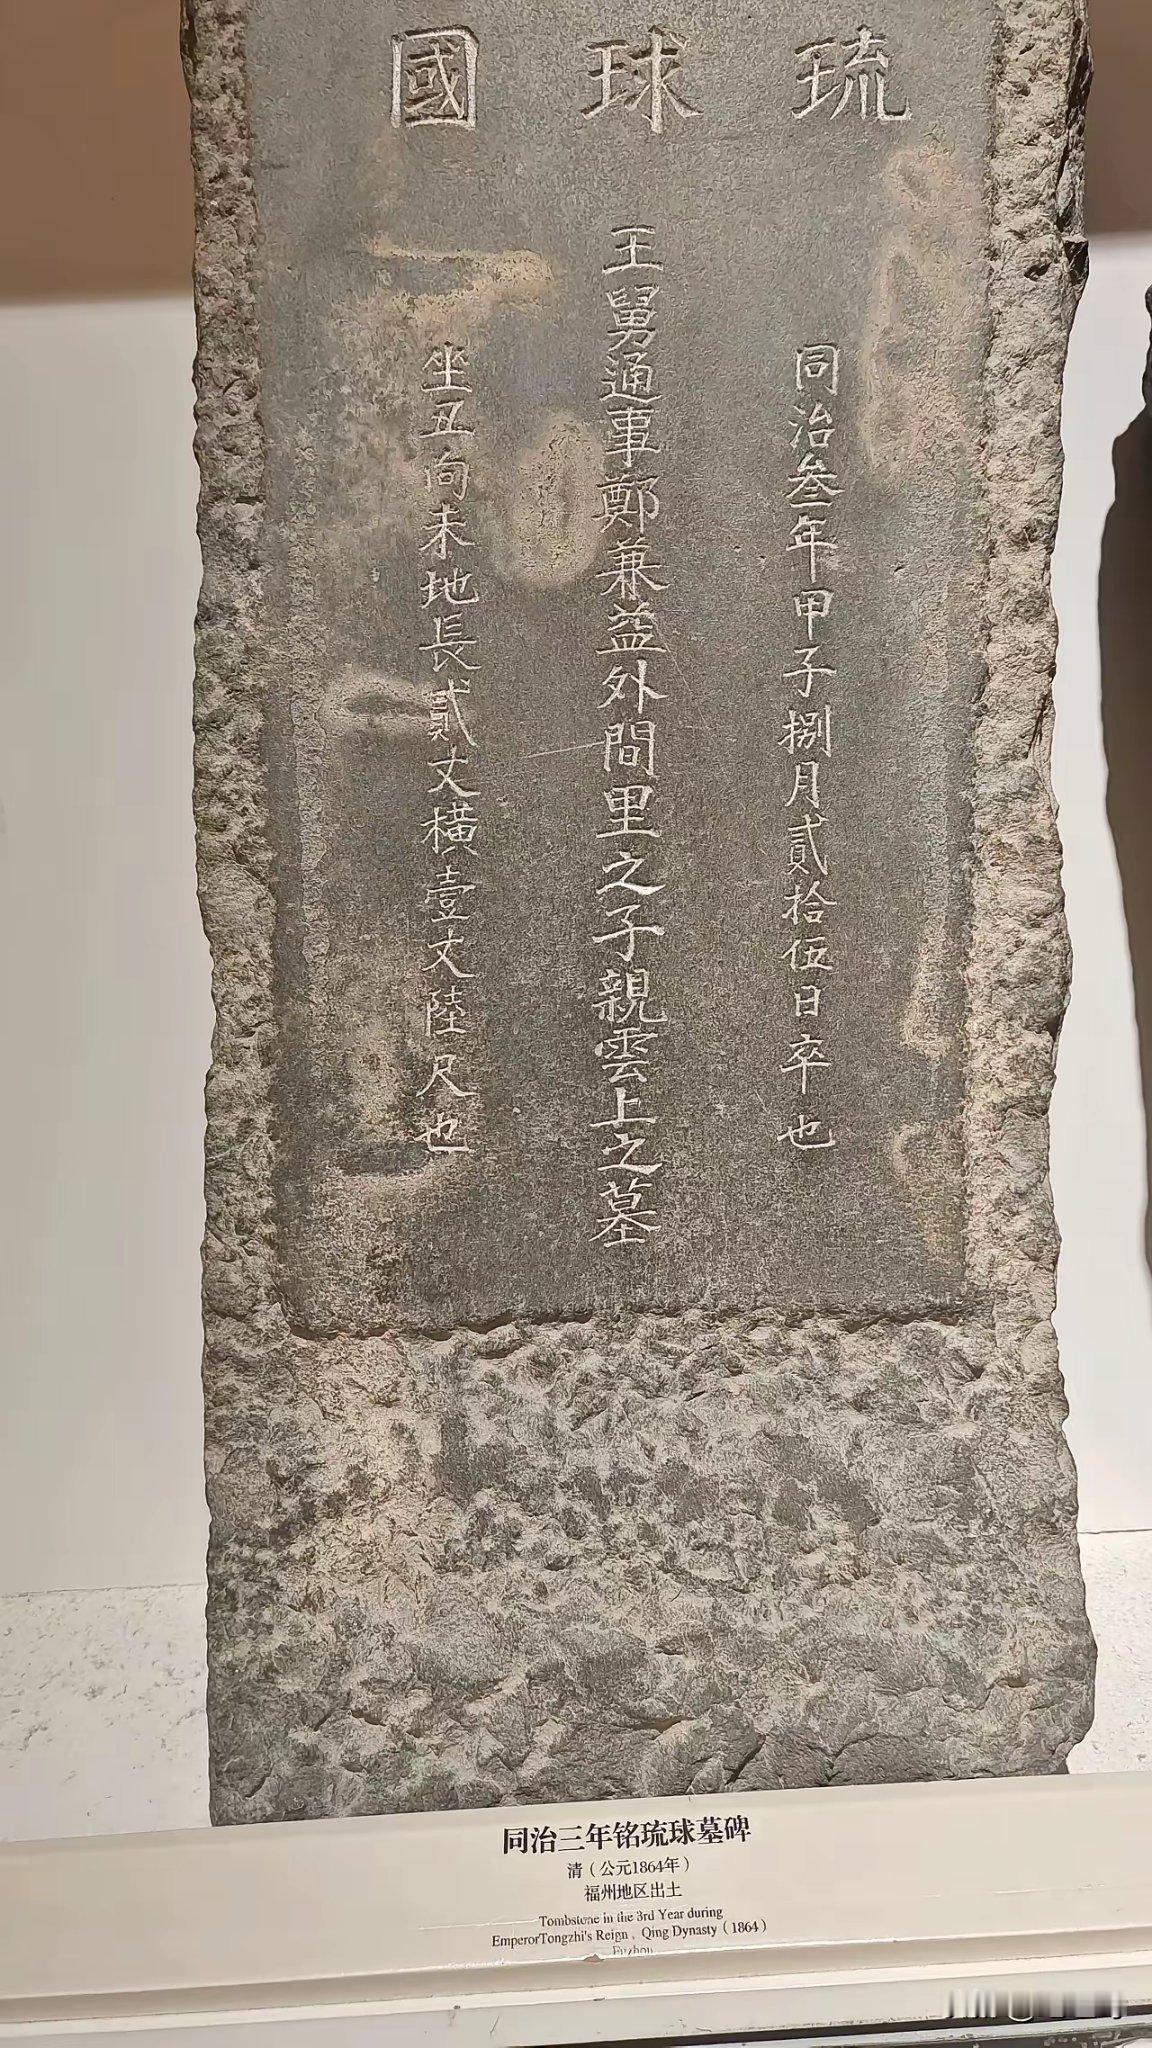 琉球國
同治叁年甲子捌月貳拾伍日卒也
王舅通事鄭兼益外間里之子親雲上之墓
坐丑向未地長貳丈橫壹丈陸尺也
同治三年铭琉球墓碑
清（公元1864年）
福州地区出土
Tombstone in the 3rd Year during
EmperorTongzhi's Reign，Qing Dynasty（1864）
Fuzhou